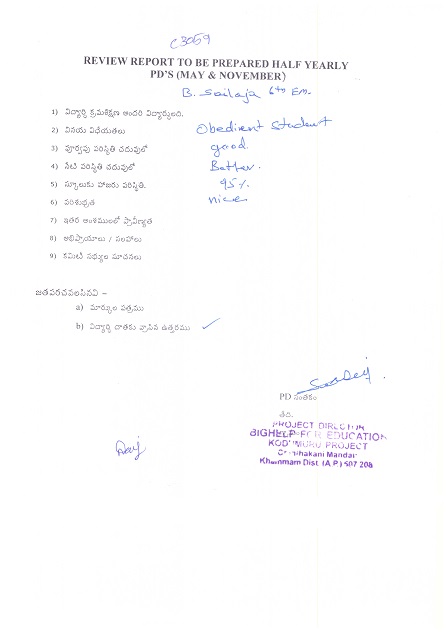 C3059
REVIEW REPORT TO BE PREPARED HALF YEARLY
PD'S (MAY & NOVEMBER)
B. Sailaja 6th Em.
1) విద్యార్థి క్రమశిక్షణ అందరి విద్యార్థులది.
2) వినయ విధేయతలు Obedient Student
3) పూర్వపు పరిస్థితి చదువులో good
4) నేటి పరిస్థితి చదువులో Better.
5) స్కూలుకు హాజరు పరిస్థితి. 95%
6) పరిశుభ్రత nice
7) ఇతర అంశములలో ప్రావీణ్యత
8) అభిప్రాయాలు / సలహాలు
9) కమిటి సభ్యుల సూచనలు
జతపరచవలసినవి –
a) మార్కుల పత్రము
b) విద్యార్థి దాతకు వ్రాసిన ఉత్తరము ✓
PD సంతకం
తేది.
PROJECT DIRECTOR
BIGHELP FOR EDUCATION
KODUMURU PROJECT
Mandal
Khammam Dist. (A.P) 507 208